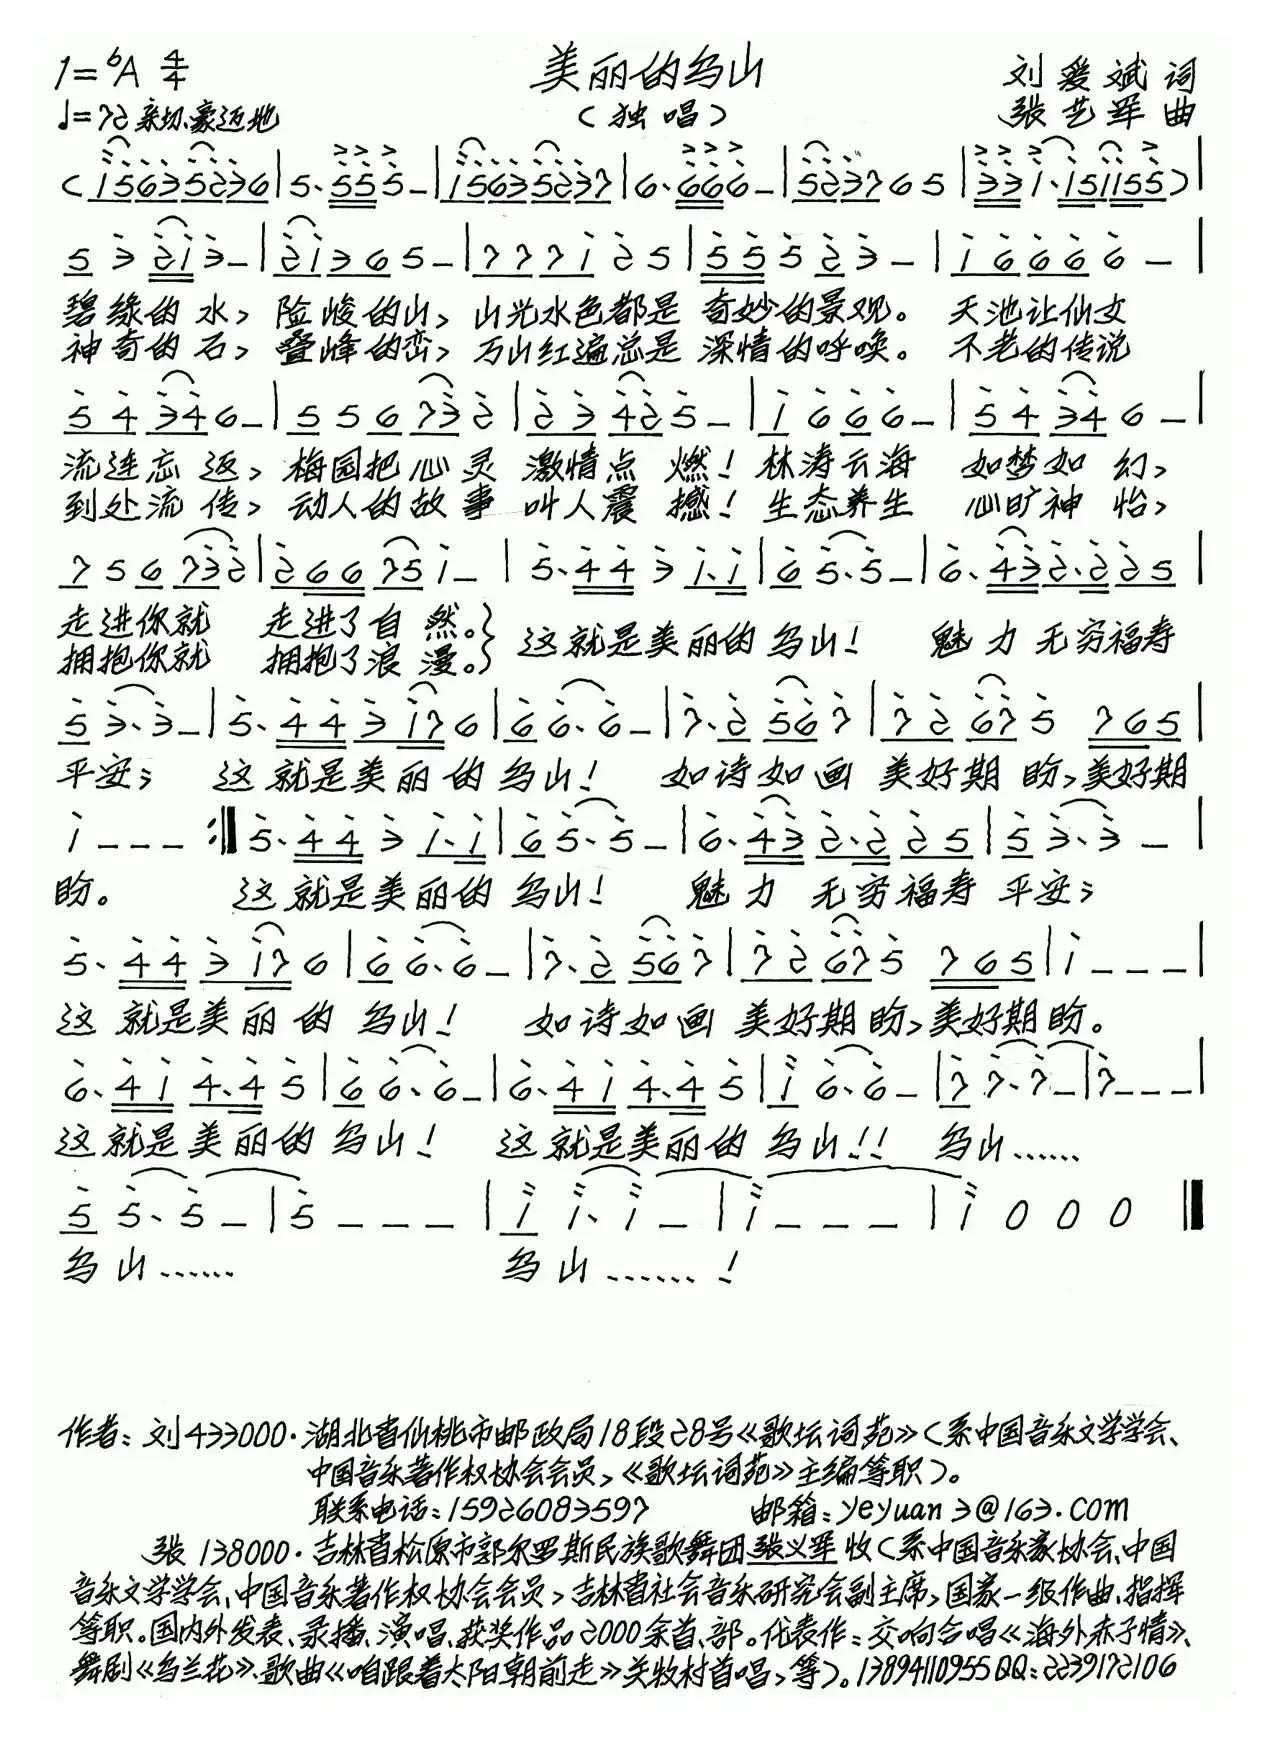 1=♭A 4/4
美丽的乌山
刘爱斌 词
♩=72 亲切、豪迈地
（独唱）
张艺军 曲
(1563 5236|5. 555 -|1563 5237|6. 666 -|5237 65|33 1. 151155)|
5 3 21 3 -|2136 5 -|7771 2 5|555 23 -|1666 6 -|
碧绿的 水，险峻的山，山光水色都是 奇妙的景观。 天池让仙女
神奇的 石，叠峰的峦，万山红遍总是 深情的呼唤。 不老的传说
54 34 6 -|5 5 6 73 2|23 42 5 -|1 6 6 6 -|54 34 6 -|
流连忘 返，梅园把 心灵 激情点 燃！林涛云海 如梦如 幻，
到处流 传，动人的 故事 叫人震 撼！生态养生 心旷神 怡，
7 5 6 73 2|266 75 1 -|5. 44 3 1.1|6 5. 5 -|6. 43 2.2 25|
走进你就 走进了自 然。} 这就是美丽的乌山！ 魅力 无穷福寿
拥抱你就 拥抱了浪 漫。}
5 3. 3 -|5. 44 3 17 6|6 6. 6 -|7. 2 56 7|72 67 5 765|
平安； 这就是美丽的乌山！ 如诗如画 美好期 盼，美好期
1 - - - :‖5. 44 3 1.1|6 5. 5 -|6. 43 2.2 25|5 3. 3 -|
盼。 这就是美丽的 乌山！ 魅力 无穷福寿 平安；
5. 44 3 17 6|6 6. 6 -|7. 2 56 7|72 67 5 765|1 - - -|
这就是美丽的 乌山！ 如诗如画 美好期盼，美好期盼。
6. 41 4.4 5|6 6. 6 -|6. 41 4.4 5|1 6. 6 -|7 7. 7 -|7 - - -|
这就是美丽的 乌山！ 这就是美丽的 乌山！！ 乌山……
5 5. 5 -|5 - - -|1 1. 1 -|1 - - -|1 0 0 0‖
乌山…… 乌山……！
作者：刘 433000·湖北省仙桃市邮政局18段28号《歌坛词苑》（系中国音乐文学学会、
中国音乐著作权协会会员，《歌坛词苑》主编等职）。
联系电话：15926083597 邮箱：yeyuan3@163.com
张 138000·吉林省松原市郭尔罗斯民族歌舞团张义军 收（系中国音乐家协会、中国
音乐文学学会、中国音乐著作权协会会员，吉林省社会音乐研究会副主席，国家一级作曲、指挥
等职。国内外发表、录播、演唱、获奖作品2000余首、部。代表作：交响合唱《海外赤子情》、
舞剧《乌兰花》、歌曲《咱跟着太阳朝前走》关牧村首唱，等）。13894110955 QQ：2239172106